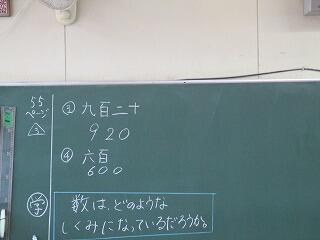 55
ページ
△3
① 九百二十
920
④ 六百
600
学
数は、どのような
しくみになっているだろうか。